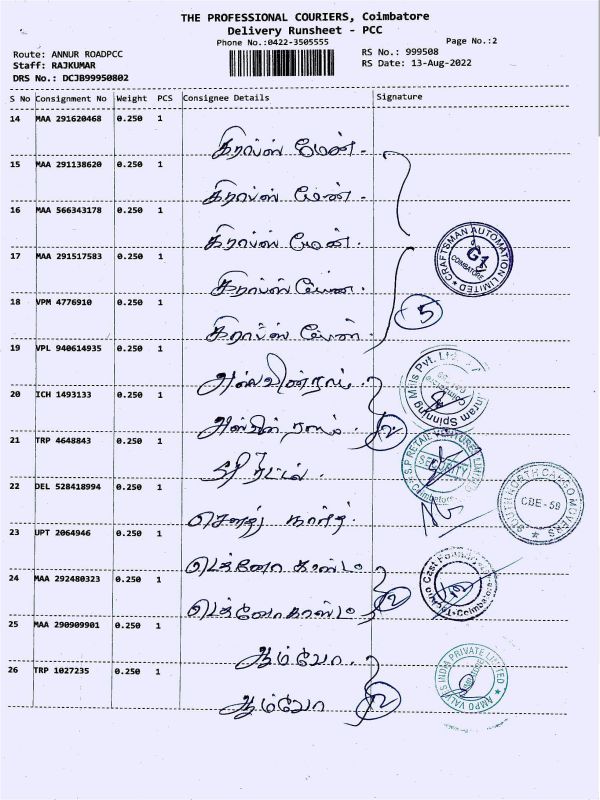 THE PROFESSIONAL COURIERS, Coimbatore
Delivery Runsheet - PCC
Phone No.:0422-3505555
Page No.:2
Route: ANNUR ROADPCC
RS No.: 999508
Staff: RAJKUMAR
RS Date: 13-Aug-2022
DRS No.: DCJB99950802
S No Consignment No Weight PCS Consignee Details Signature
14 MAA 291620468 0.250 1
கிராப்ஸ் மேன்.
15 MAA 291138620 0.250 1
கிராப்ஸ் மேன்.
16 MAA 566343178 0.250 1
கிராப்ஸ் மேன்.
17 MAA 291517583 0.250 1
கிராப்ஸ் மேன்.
CRAFTSMAN AUTOMATION LIMITED
G1
COIMBATORE
18 VPM 4776910 0.250 1
கிராப்ஸ் மேன்.
5
19 VPL 940614935 0.250 1
Spinning Mills Pvt. Ltd.
20 ICH 1493133 0.250 1
2
21 TRP 4648843 0.250 1
S.P RETAIL VENTURES LIMITED
SECURITY
Coimbatore
22 DEL 528418994 0.250 1
சௌத் நார்த்
SOUTH NORTH CARGO MOVERS
CBE-59
23 UPT 2064946 0.250 1
டெக்னோ காஸ்ட்
24 MAA 292480323 0.250 1
டெக்னோ காஸ்ட்
2
Coimbatore
25 MAA 290909901 0.250 1
ஆம்போ.
26 TRP 1027235 0.250 1
ஆம்போ
2
AMPO VALVES INDIA PRIVATE LIMITED